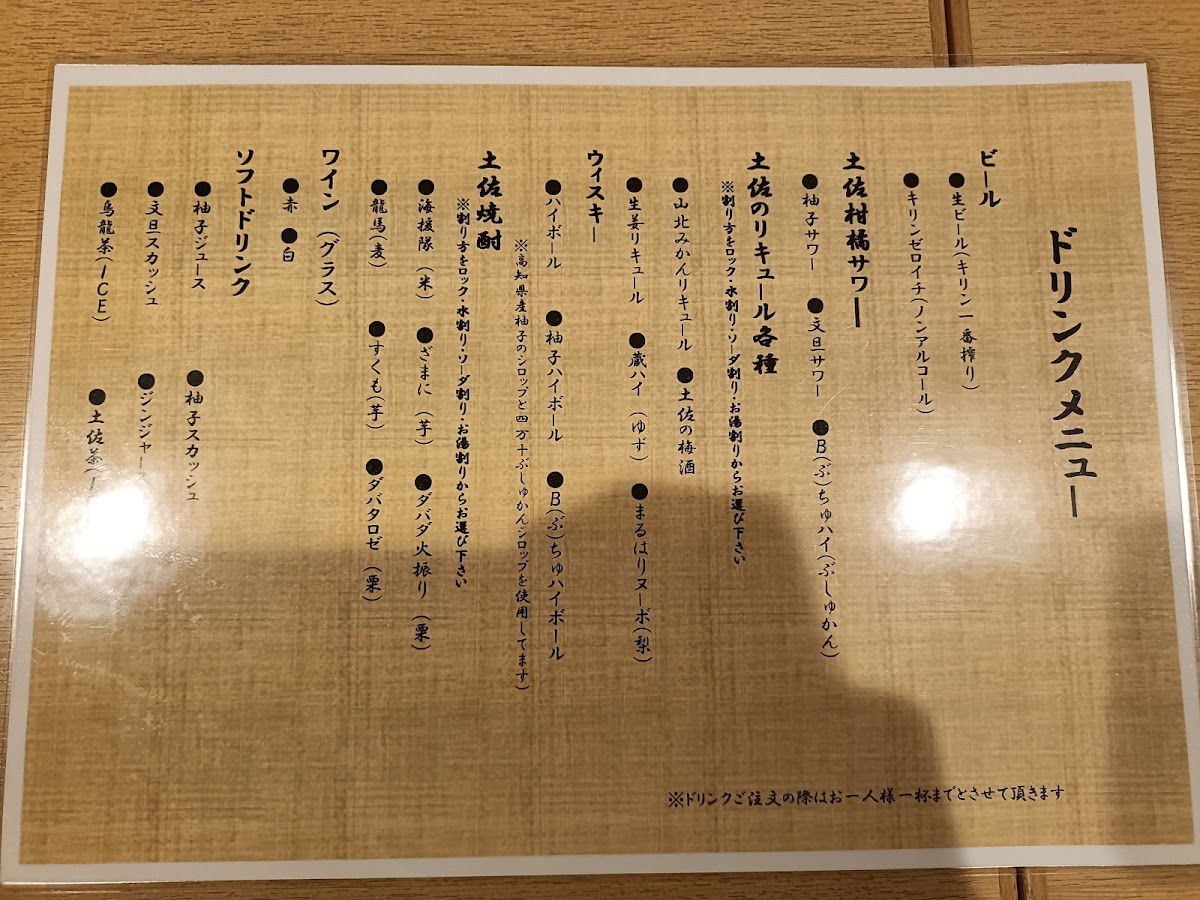 ドリンクメニュー
ビール
●生ビール(キリン一番搾り)
●キリンゼロイチ(ノンアルコール)
土佐柑橘サワー
●柚子サワー ●文旦サワー ●B(ぶ)ちゅハイ(ぶしゅかん)
土佐のリキュール各種
※割り方をロック・水割り・ソーダ割り・お湯割りからお選び下さい
●山北みかんリキュール ●土佐の梅酒
●生姜リキュール ●蔵ハイ(ゆず) ●まるはりヌーボ(梨)
ウィスキー
●ハイボール ●柚子ハイボール ●B(ぶ)ちゅハイボール
※高知県産柚子のシロップと四万十ぶしゅかんシロップを使用してます)
土佐焼酎
※割り方をロック・水割り・ソーダ割り・お湯割りからお選び下さい
●海援隊(米) ●ざまに(芋) ●ダバダ火振り(栗)
●龍馬(麦) ●すくも(芋) ●ダバタロゼ(栗)
ワイン(グラス)
●赤 ●白
ソフトドリンク
●柚子ジュース ●柚子スカッシュ
●文旦スカッシュ ●ジンジャー
●烏龍茶(ICE) ●土佐茶(I
※ドリンクご注文の際はお一人様一杯までとさせて頂きます